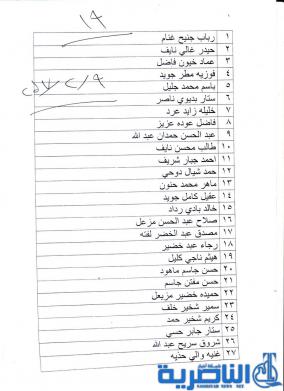 ١٩
١ رباب جنيح غنام
٢ حيدر غالي نايف
٣ عماد خيون فاضل
٤ فوزيه مطر جويد
٥ باسم محمد جليل
٦ ستار بديوي ناصر
٧ خليله زايد عرد
٨ فاضل عوده عزيز
٩ عبد الحسن حمدان عبد الله
١٠ طالب محسن نايف
١١ احمد جبار شريف
١٢ حمد شيال دوحي
١٣ ماهر محمد حنون
١٤ عقيل كامل جويد
١٥ خالد بادي رداد
١٦ صلاح عبد الحسن مزعل
١٧ مصدق عبد الخضر لفته
١٨ رجاء عبد خضير
١٩ هيثم ناجي كليل
٢٠ حسن جاسم ماهود
٢١ حسن مفتن جاسم
٢٢ حميده خضير مزيعل
٢٣ سمير شخير خلف
٢٤ كريم شخير حمد
٢٥ ستار جابر حسي
٢٦ شروق سريح عبد الله
٢٧ غنيه والي حذيه
شبكة اخبار
الناصرية